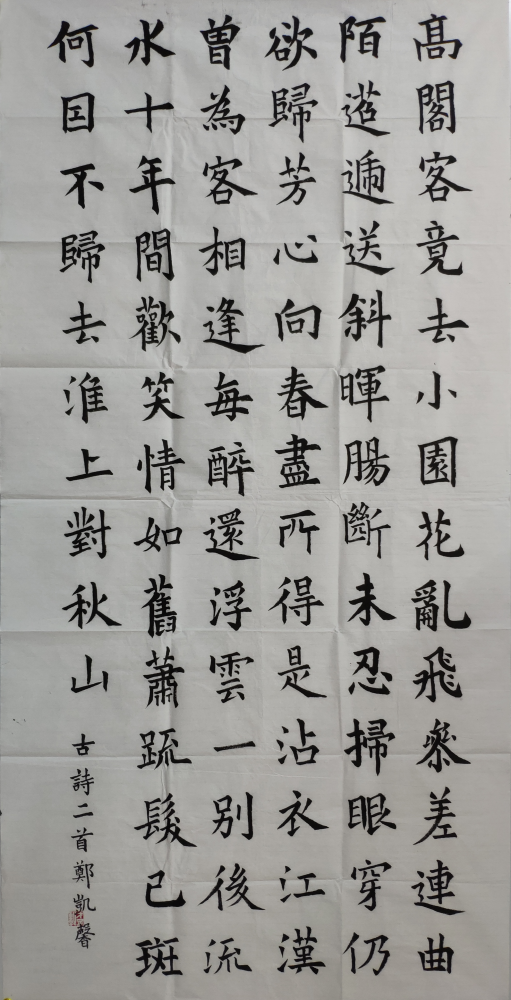 髙閣客竟去小園花亂飛參差連曲
陌迢遞送斜暉腸斷未忍掃眼穿仍
欲歸芳心向春盡所得是沾衣江漢
曾為客相逢每醉還浮雲一别後流
水十年間歡笑情如舊蕭疏鬢已斑
何因不歸去淮上對秋山
古詩二首鄭凱馨